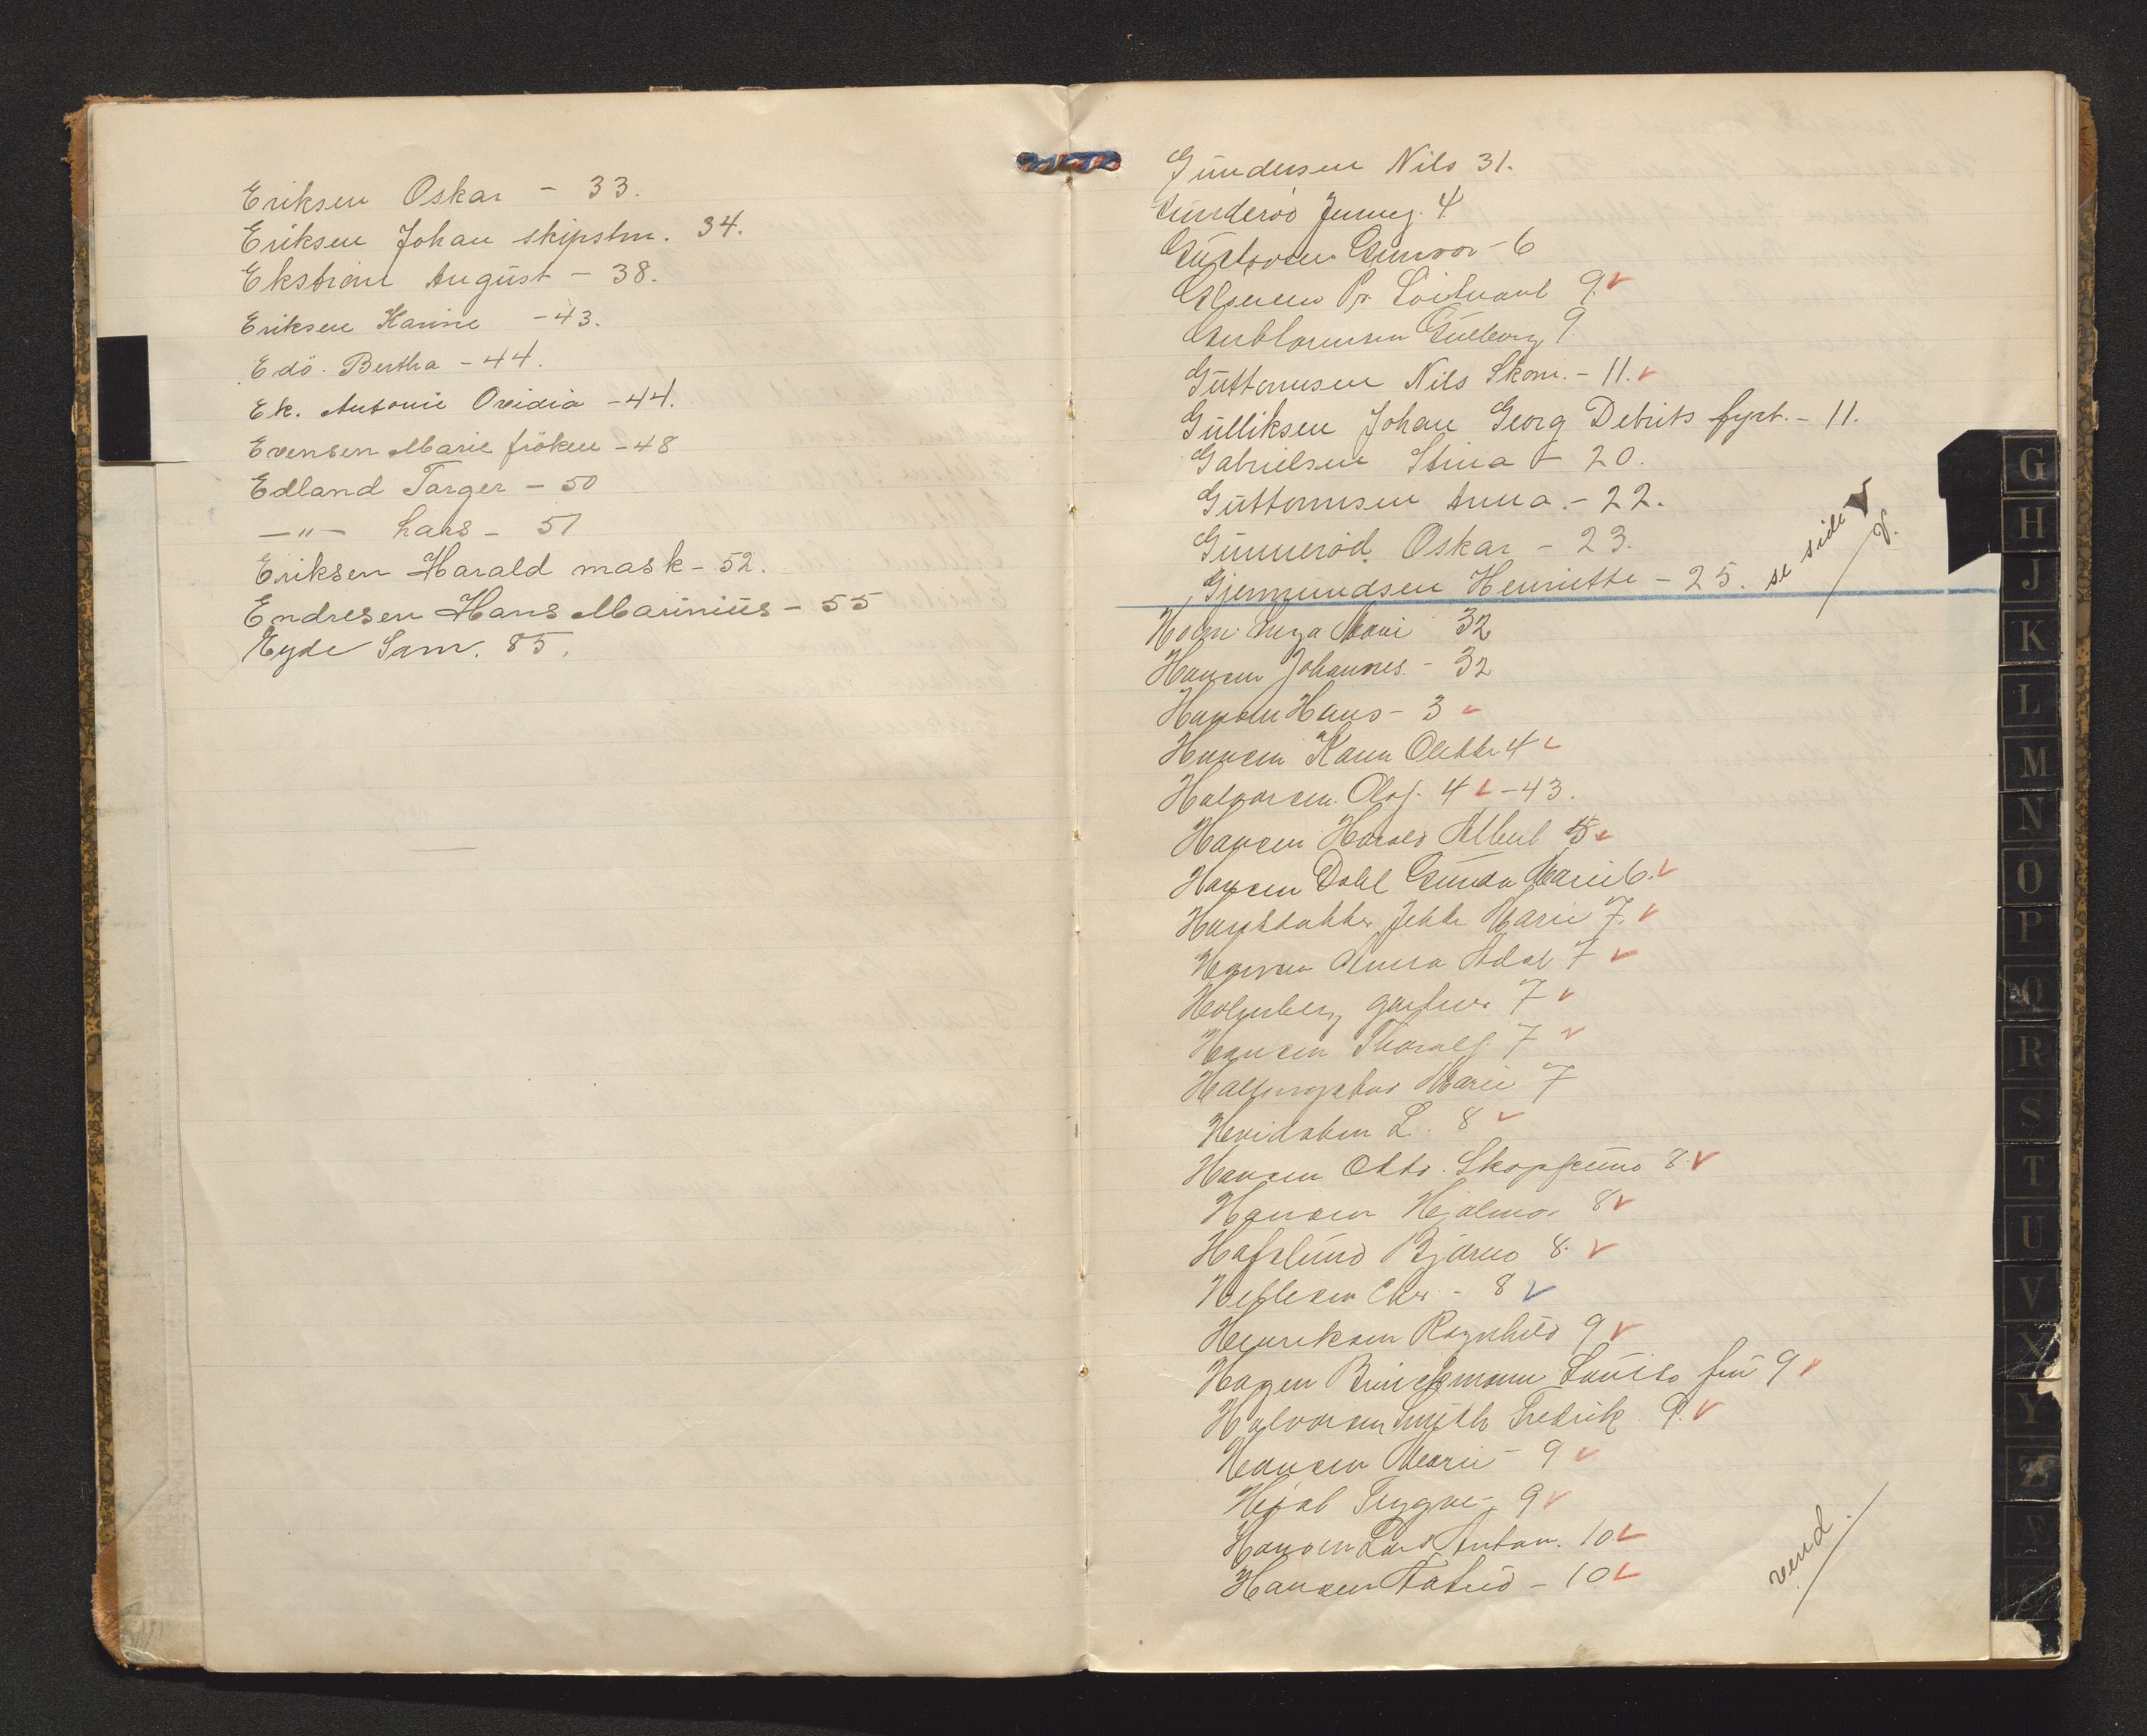 Eriksen Oskar - 33.
Eriksen Johan skipstm. 34.
Ekström August - 38.
Eriksen Karine - 43.
Edö. Bertha - 44.
Ek. Antonie Ovidia - 44.
Evensen Marie fröken - 48
Edland Targer - 50
—"— Lars - 51
Eriksen Harald mask - 52.
Endresen Hans Marinius - 55
Eyde Sam. 85.
Gundersen Nils 31.
Gunderöd Jenny. 4
Gustavsen Gunvor - 6
Pr. Löitnant 9. ✓
Gulborg 9.
Guttormsen Nils Skom. - 11. ✓
Gulliksen Johan Georg Debuts fyrb. - 11.
Gabrielsen Stina - 20.
Guttormsen Anna. - 22.
Gunneröd Oskar - 23.
Gjermundsen Henriette - 25. se side V
V.
Holm Inga Marie 32
Hansen Johannes. - 32
Hansen Hans - 3 ✓
Hansen Karen Olette 4 ✓
Halvorsen. Olaf. 4 ✓ - 43.
Hansen Harald Albert 5 ✓
Hansen Dahl Gunda Marie 6. ✓
Jette Marie 7. ✓
Hansen Anna Adal 7 ✓
Holmberg gartner 7 ✓
Hansen Thoralf. 7 ✓
Marie 7
L. 8 ✓
Hansen Otto. 8. ✓
Hansen Hjalmar 8 ✓
Hafslund Bjarne 8. ✓
Chr. - 8 ✓
Henriksen Ragnhild 9 ✓
Hagen Brinckmann Louise fru 9 ✓
Halvorsen Smith Fredrik 9. ✓
Hansen Marie - 9 ✓
Trygve - 9 ✓
Hansen Lars Anton. 10 ✓
Hansen Astrid - 10 ✓
vend.
G
H
J
K
L
M
N
O
P
Q
R
S
T
U
V
X
Y
Z